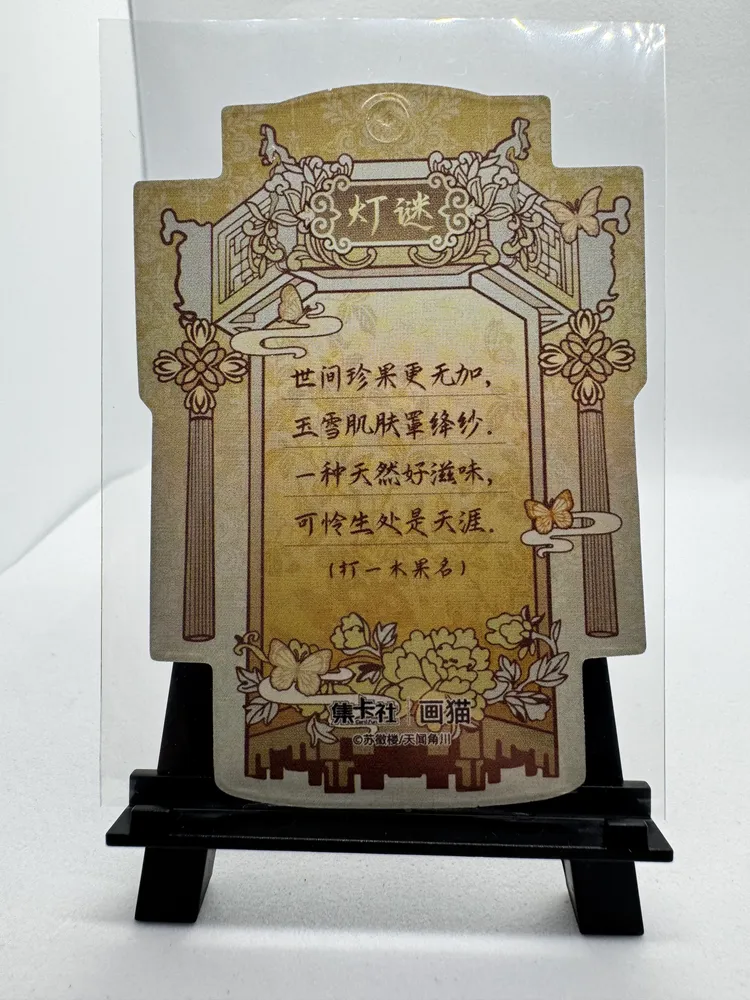 灯谜
世间珍果更无加,
玉雪肌肤罩绛纱.
一种天然好滋味,
可怜生处是天涯.
(打一水果名)
集卡社 | 画猫
©苏徵楼/天闻角川